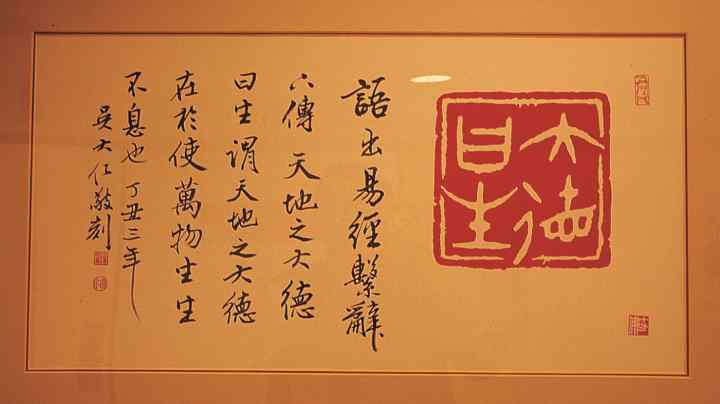 大德
曰生
語出易經繫辭
下傳 天地之大德
曰生謂天地之大德
在於使萬物生生
不息也 丁丑三年
吳大仁敬刻